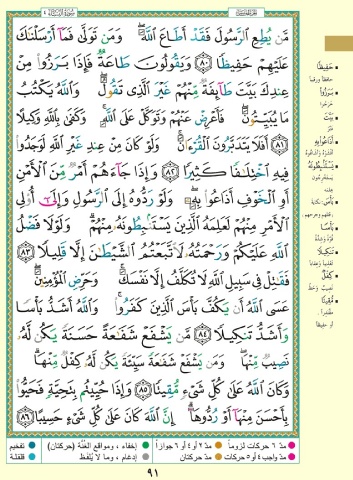 سُورَةُ النِّسَاءِ ٤
الجُزءُ الخَامِسُ
مَّن يُطِعِ الرَّسُولَ فَقَدْ أَطَاعَ اللَّهَ ۖ وَمَن تَوَلَّىٰ فَمَا أَرْسَلْنَاكَ
عَلَيْهِمْ حَفِيظًا ٨٠ وَيَقُولُونَ طَاعَةٌ فَإِذَا بَرَزُوا مِنْ
عِندِكَ بَيَّتَ طَائِفَةٌ مِّنْهُمْ غَيْرَ الَّذِي تَقُولُ ۖ وَاللَّهُ يَكْتُبُ
مَا يُبَيِّتُونَ ۖ فَأَعْرِضْ عَنْهُمْ وَتَوَكَّلْ عَلَى اللَّهِ ۚ وَكَفَىٰ بِاللَّهِ وَكِيلًا
٨١ أَفَلَا يَتَدَبَّرُونَ الْقُرْآنَ ۚ وَلَوْ كَانَ مِنْ عِندِ غَيْرِ اللَّهِ لَوَجَدُوا
فِيهِ اخْتِلَافًا كَثِيرًا ٨٢ وَإِذَا جَاءَهُمْ أَمْرٌ مِّنَ الْأَمْنِ
أَوِ الْخَوْفِ أَذَاعُوا بِهِ ۖ وَلَوْ رَدُّوهُ إِلَى الرَّسُولِ وَإِلَىٰ أُولِي
الْأَمْرِ مِنْهُمْ لَعَلِمَهُ الَّذِينَ يَسْتَنبِطُونَهُ مِنْهُمْ ۗ وَلَوْلَا فَضْلُ
اللَّهِ عَلَيْكُمْ وَرَحْمَتُهُ لَاتَّبَعْتُمُ الشَّيْطَانَ إِلَّا قَلِيلًا ٨٣
فَقَاتِلْ فِي سَبِيلِ اللَّهِ لَا تُكَلَّفُ إِلَّا نَفْسَكَ ۚ وَحَرِّضِ الْمُؤْمِنِينَ ۖ
عَسَى اللَّهُ أَن يَكُفَّ بَأْسَ الَّذِينَ كَفَرُوا ۚ وَاللَّهُ أَشَدُّ بَأْسًا
وَأَشَدُّ تَنكِيلًا ٨٤ مَّن يَشْفَعْ شَفَاعَةً حَسَنَةً يَكُن لَّهُ
نَصِيبٌ مِّنْهَا ۖ وَمَن يَشْفَعْ شَفَاعَةً سَيِّئَةً يَكُن لَّهُ كِفْلٌ مِّنْهَا ۗ
وَكَانَ اللَّهُ عَلَىٰ كُلِّ شَيْءٍ مُّقِيتًا ٨٥ وَإِذَا حُيِّيتُم بِتَحِيَّةٍ فَحَيُّوا
بِأَحْسَنَ مِنْهَا أَوْ رُدُّوهَا ۗ إِنَّ اللَّهَ كَانَ عَلَىٰ كُلِّ شَيْءٍ حَسِيبًا ٨٦
حَفِيظًا
بَرَزُوا
خرجوا
بَيَّتَ
أَذَاعُوا بِهِ
يَسْتَنبِطُونَهُ
بَأْسَ
تَنكِيلًا
كِفْلٌ
مُّقِيتًا
مدّ ٦ حركات لزوماً
مدّ ٢ أو ٤ أو ٦ جوازاً
إخفاء، ومواقع الغُنَّة (حركتان)
تفخيم
مدّ واجب ٤ أو ٥ حركات
مدّ حركتان
إدغام، وما لا يُلفَظ
قلقلة
٩١